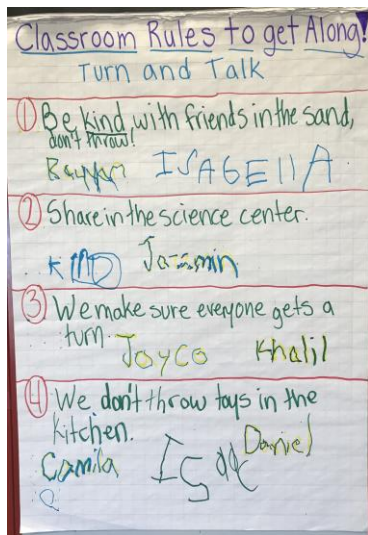 Classroom Rules to get Along!
Turn and Talk
1 Be kind with friends in the sand,
don't throw!
ISABEllA
2 Share in the science center.
Jazmin
3 We make sure everyone gets a
turn.
JoyCo Khalil
4 We don't throw toys in the
kitchen.
Daniel
Camila